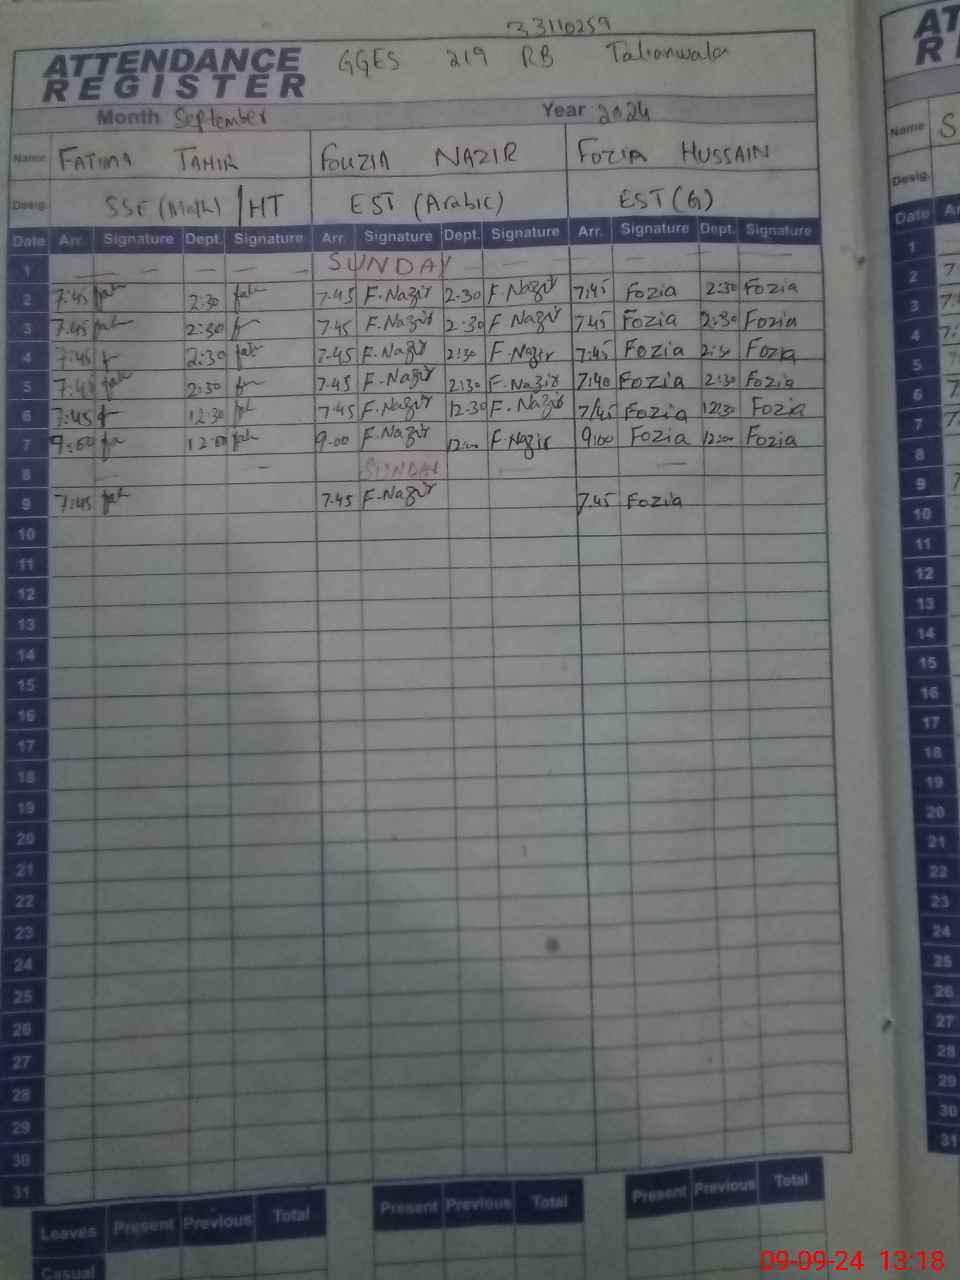 33110259
ATTENDANCE REGISTER GGES 219 RB Talianwala
Month September Year 2024
Name FATIMA TAHIR FOUZIA NAZIR FOZIA HUSSAIN
Desig. SSE (Math) / HT EST (Arabic) EST (G)
Date Arr. Signature Dept. Signature Arr. Signature Dept. Signature Arr. Signature Dept. Signature
1 SUNDAY
2 7:45 2:30 7.45 F.Nazir 2.30 F.Nazir 7:45 Fozia 2:30 Fozia
3 7.45 2:30 7.45 F.Nazir 2:30 F.Nazir 7.45 Fozia 2:30 Fozia
4 7:45 2:30 7.45 F.Nazir 2:30 F.Nazir 7:45 Fozia 2:30 Fozia
5 7:45 2:30 7.45 F.Nazir 2:30 F.Nazir 7:40 Fozia 2:30 Fozia
6 7:45 12:30 7.45 F.Nazir 12.30 F.Nazir 7/45 Fozia 12:30 Fozia
7 9:00 12:00 9.00 F.Nazir 12:00 F.Nazir 9:00 Fozia 12:00 Fozia
8 SUNDAY
9 7:45 7.45 F.Nazir 7.45 Fozia
10
11
12
13
14
15
16
17
18
19
20
21
22
23
24
25
26
27
28
29
30
31
Leaves Present Previous Total Present Previous Total Present Previous Total
Casual
AT
R
Name S
Desig.
Date
1
2
3
4
5
6
7
8
9
10
11
12
13
14
15
16
17
18
19
20
21
22
23
24
25
26
27
28
29
30
31
09-09-24 13:18